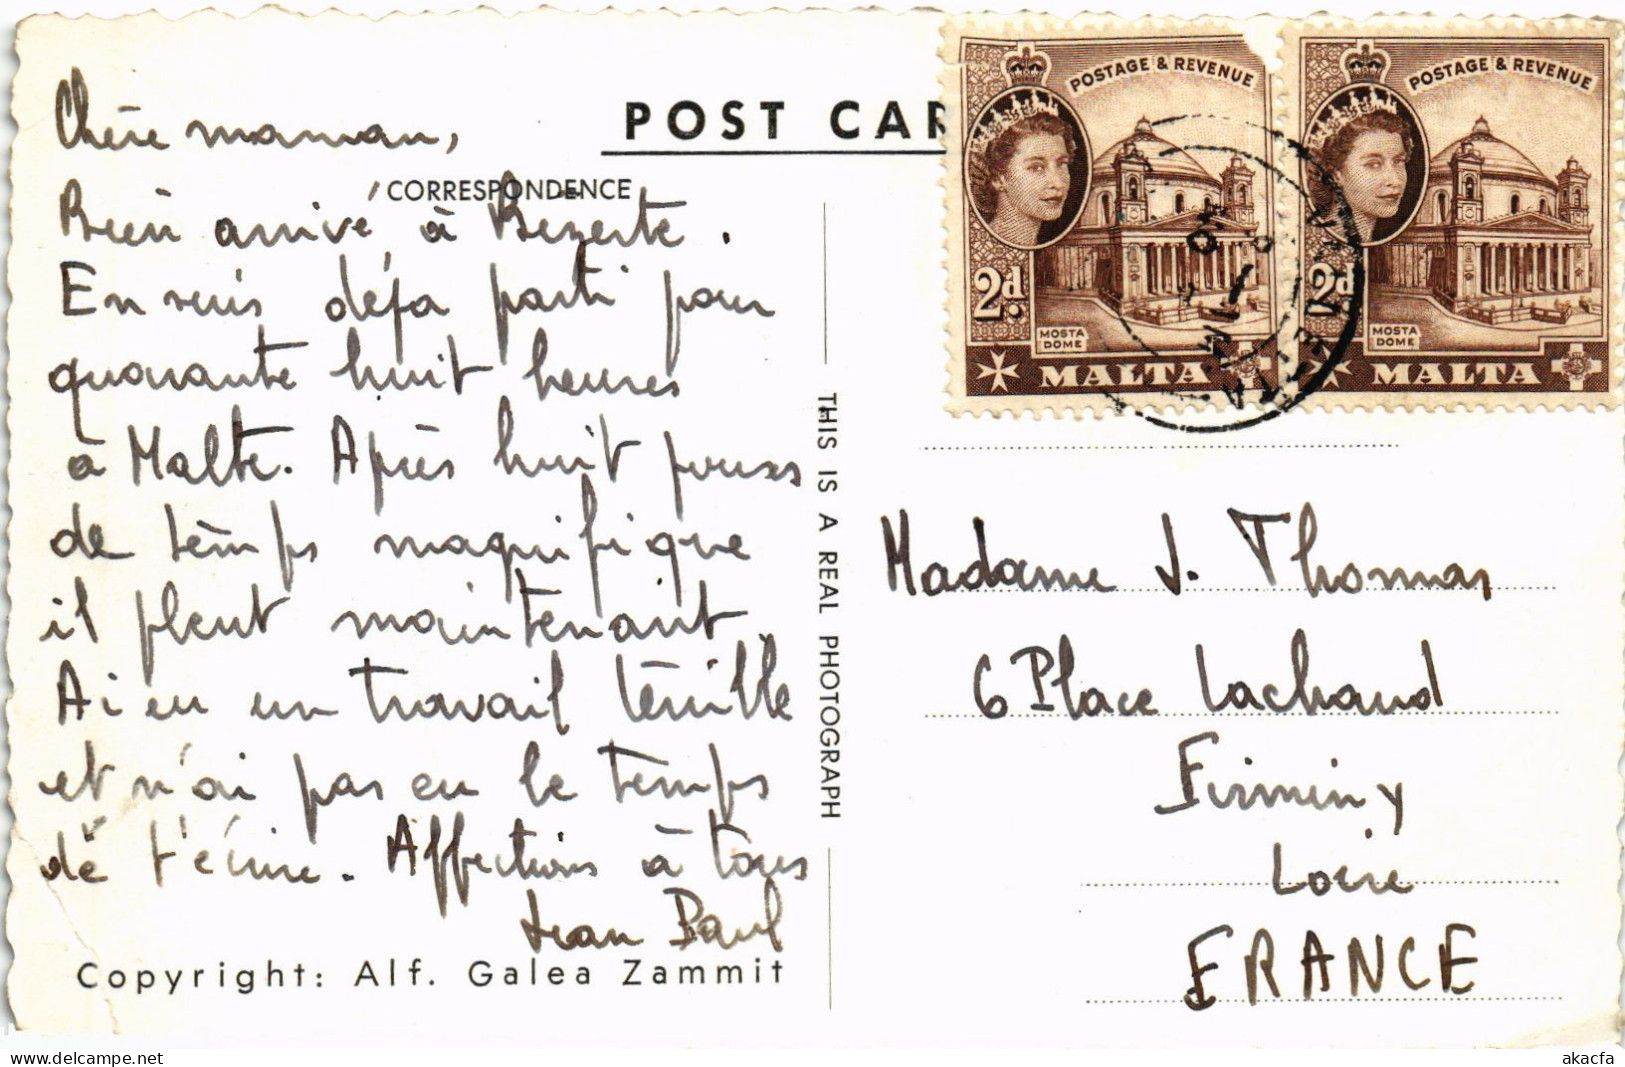 POST CAR
CORRESPONDENCE
Chère maman,
Bien arrivé à Bizerte.
En suis déjà parti pour
quarante huit heures
à Malte. Après huit jours
de temps magnifique
il pleut maintenant
Ai eu un travail terrible
et n'ai pas eu le temps
de t'écrire. Affections à tous
Jean Paul
Copyright: Alf. Galea Zammit
THIS IS A REAL PHOTOGRAPH
POSTAGE & REVENUE
2d.
MOSTA
DOME
MALTA
POSTAGE & REVENUE
2d
MOSTA
DOME
MALTA
Madame J. Thomas
6 Place Lachaud
Firminy
Loire
FRANCE
www.delcampe.net
akacfa